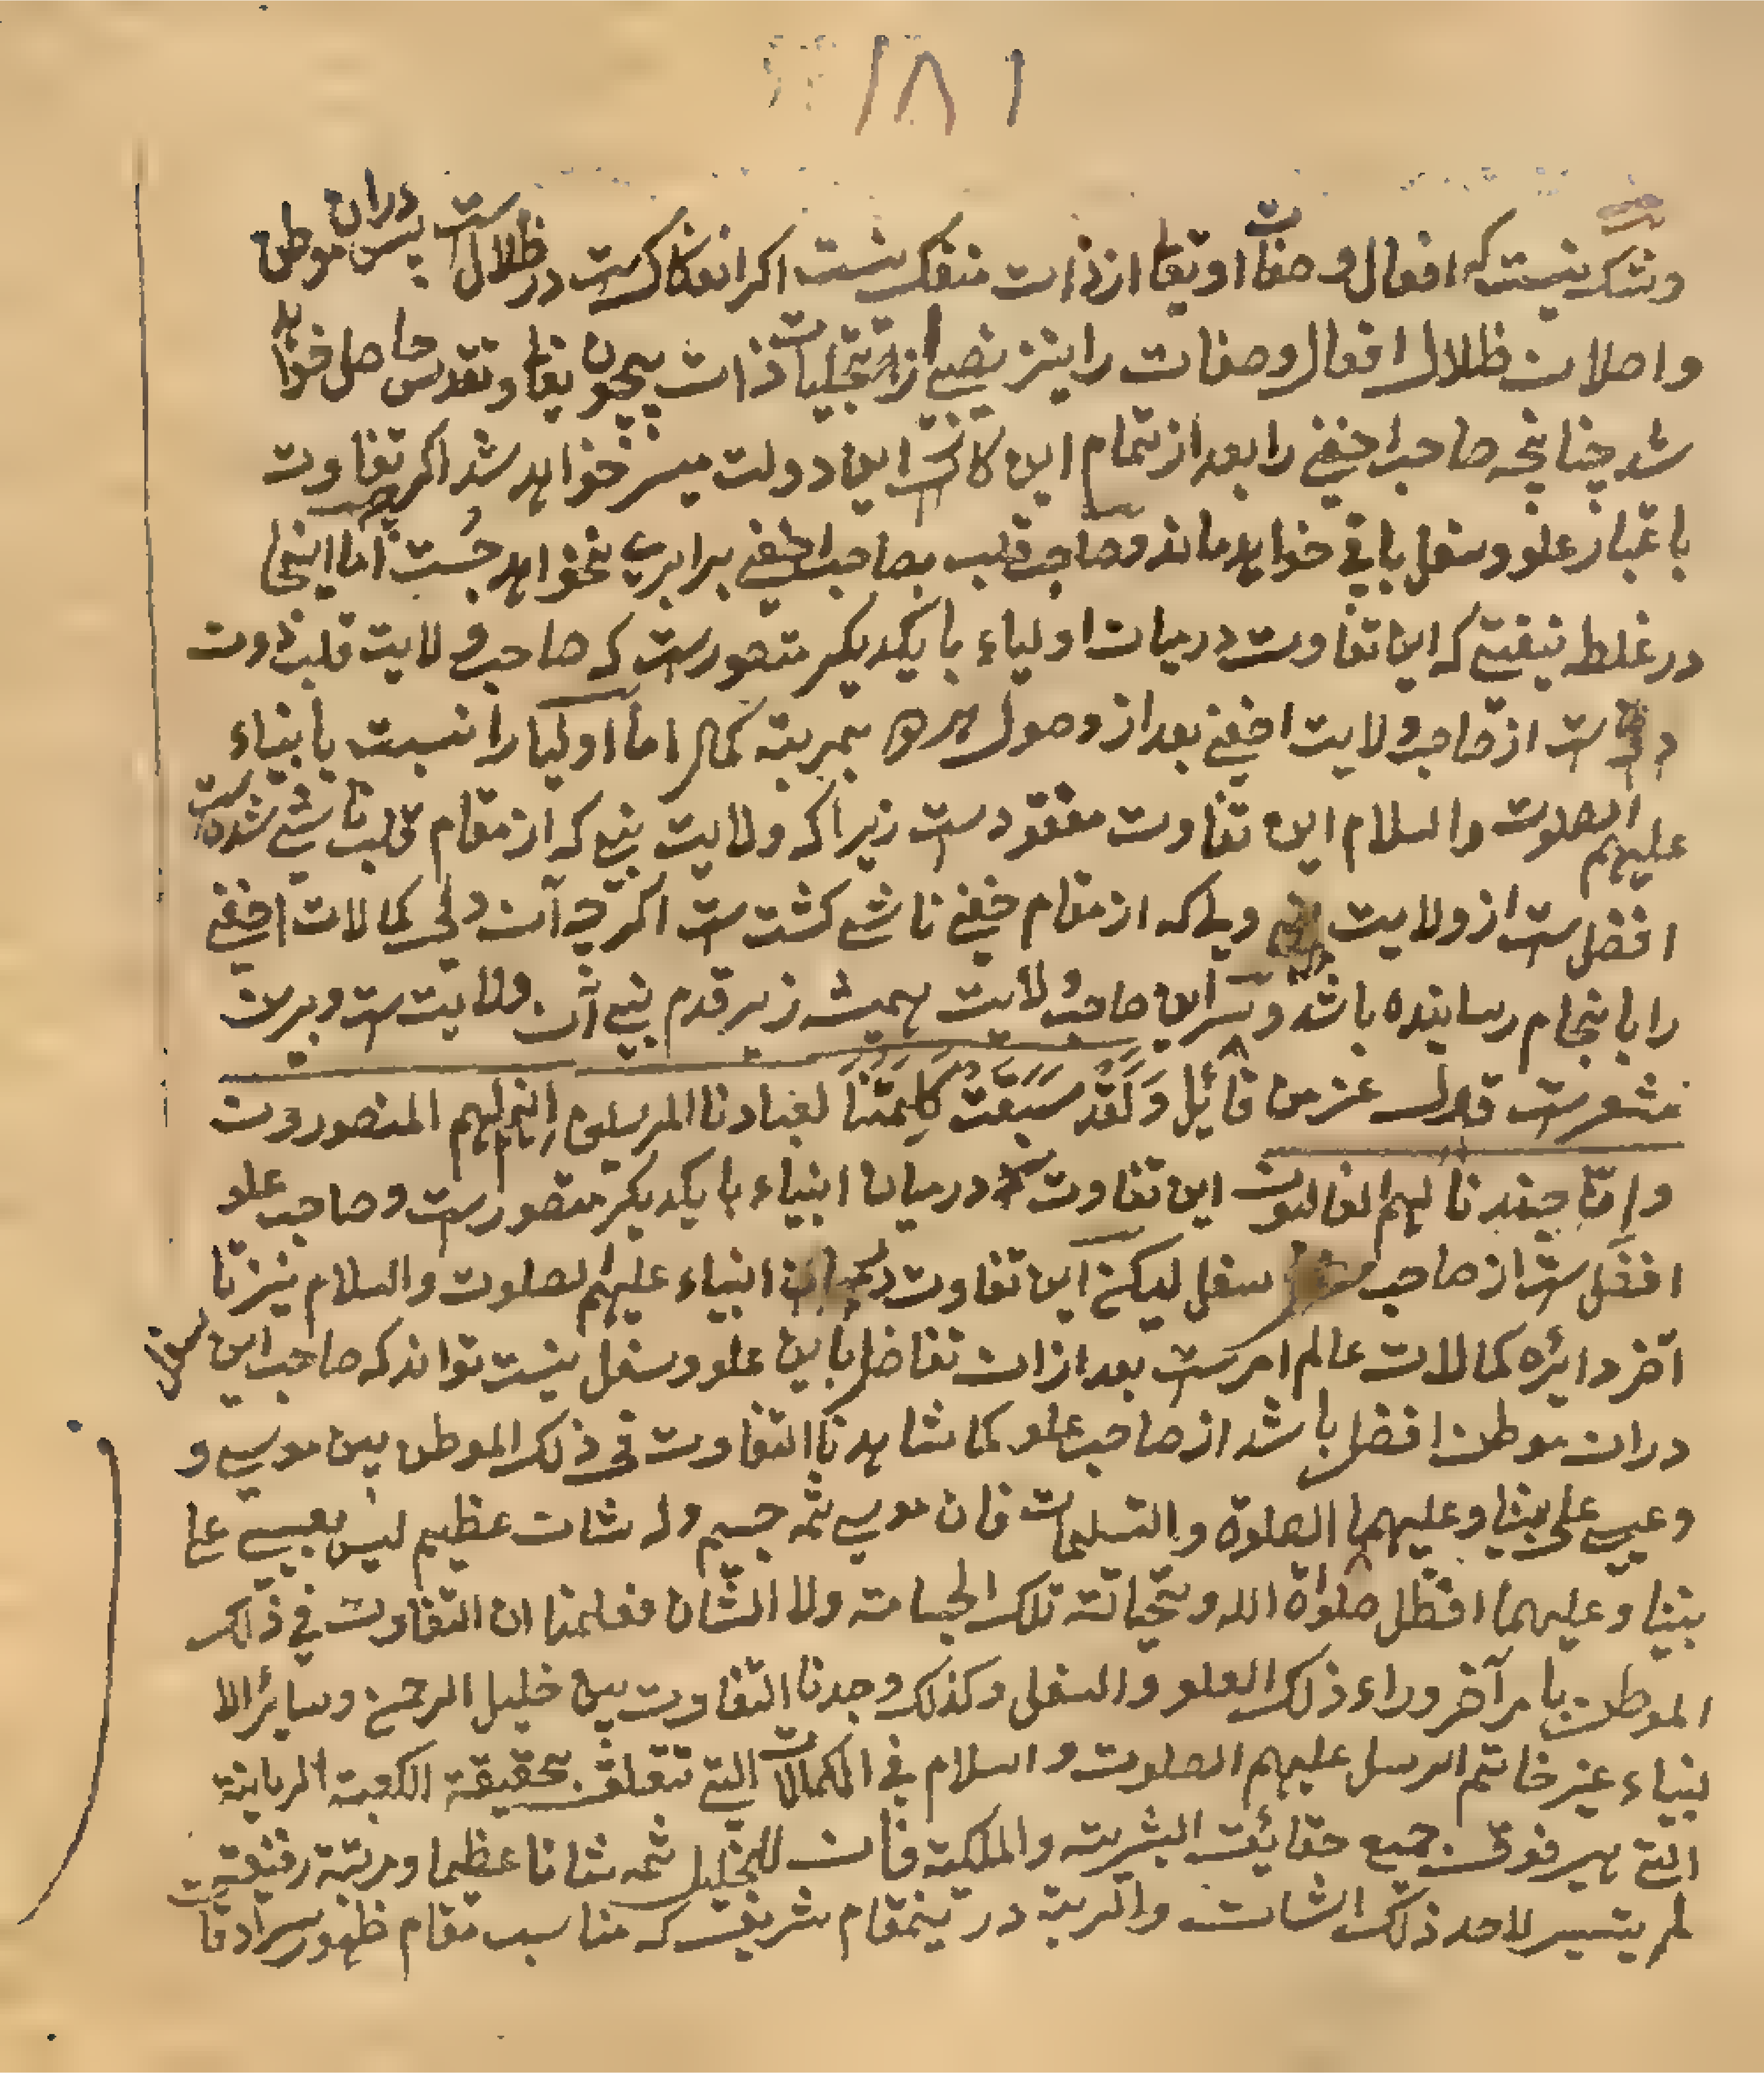 ١٨١
وشک نیست که افعال و صفات او تعا از ذات منفک نیست اکر انفکاکست در ظلالست پس دران موطن
واصلان ظلال افعال و صفات را نیز نصیبے از تجلیات ذات بیچون تعا و تقدس حاصل خواهد
شد چنانچه صاحب اخفے را بعد از تمام این کار این دولت میسر خواهد شد اکرچه تفاوت
باعتبار علو و سفل باقی خواهد ماند و صاحب قلب بصاحب اخفے برابری نخواهد جُست اما اینجا
در غلط نیفتی که این تفاوت درمیان اولیاء با یکدیکر متصورست که صاحب ولایت قلب دون
ست از صاحب ولایت اخفے بعد از وصول هر دو بمرتبه کمال اما اولیا را نسبت بانبیاء
علیهم الصلوت والسلام این تفاوت مفقودست زیرا که ولایت نبی که از مقام قلب ناشی شده است
افضل ست از ولایت ولی که از مقام خفے ناشی کشت ست اکرچه آن ولی کمالات اخفے
را بانجام رسانیده باشد و سر این صاحب ولایت همیشه زیر قدم نبی آن ولایت ست و برین
مشعرست قوله عز من قائل وَلَقَد سَبَقَت كَلِمَتُنَا لعبادنا المرسلین إنهم لهم المنصورون
وإنّ جندنا لهم الغالبون این تفاوت درمیان انبیاء با یکدیکر متصورست و صاحب علو
افضل ست از صاحب سفل لیکن این تفاوت درمیان انبیاء علیهم الصلوت والسلام نیز تا
آخر دائره کمالات عالم امرست بعد ازان تفاضل باین علو و سفل نیست تواند که صاحب این سفل
دران موطن افضل باشد از صاحب علو کما شاهدنا التفاوت فی ذلک الموطن بین موسی و
وعیسی علی نبینا وعلیهما الصلوة والتسلیمات فان موسی ثمه جسیم وله شان عظیم لیس بعیسی علی
نبینا وعلیهما افضل صلواة الله وتحیاته تلک الجسامته ولا الشان فعلمنا ان التفاوت فی ذلک
الموطن بامر آخر وراء ذلک العلو والسفل وکذلک وجدنا التفاوت بین خلیل الرحمن وسائر الا
نبیاء غیر خاتم الرسل علیهم الصلوت والسلام فی الکمالات التی تتعلق بحقیقة الکعبة الربانیة
التی هی فوق جمیع حقائق البشریته والملکیة فان للخلیل ثمه شانا عظیما ومرتبة رفیعة
لم یتیسر لاحد ذلک الشان والمرتبة درینمقام شریف که مناسب مقام ظهور سرادقات